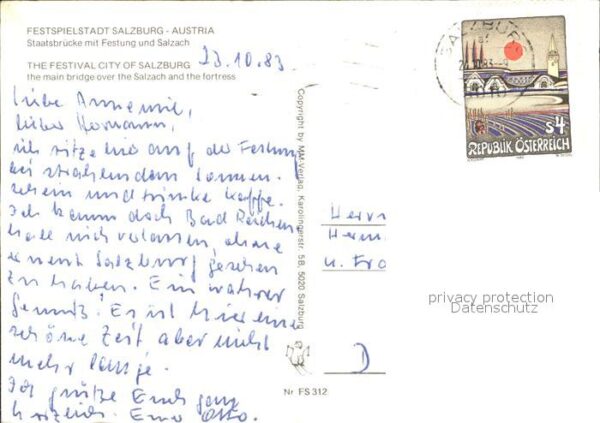 FESTSPIELSTADT SALZBURG - AUSTRIA
Staatsbrücke mit Festung und Salzach
THE FESTIVAL CITY OF SALZBURG
the main bridge over the Salzach and the fortress
23.10.83
Liebe Annemie,
lieber Hermann,
ich sitze hier auf der Festung
bei strahlendem Sonnen-
schein und trinke Kaffe.
Ich kann doch Bad Reichen
hall nicht verlassen, ohne
erneut Salzburg gesehen
zu haben. Ein wahrer
Genuß! Es ist hier eine
schöne Zeit aber nicht
mehr lange.
Ich grüße Euch ganz
herzlich. Euer Otto.
Copyright by MM-Verlag, Karolingerstr. 5B, 5020 Salzburg
Nr. FS 312
SALZBURG
24.10.83
S 4
REPUBLIK ÖSTERREICH
Herrn
Herm
u. Fra
D
privacy protection
Datenschutz